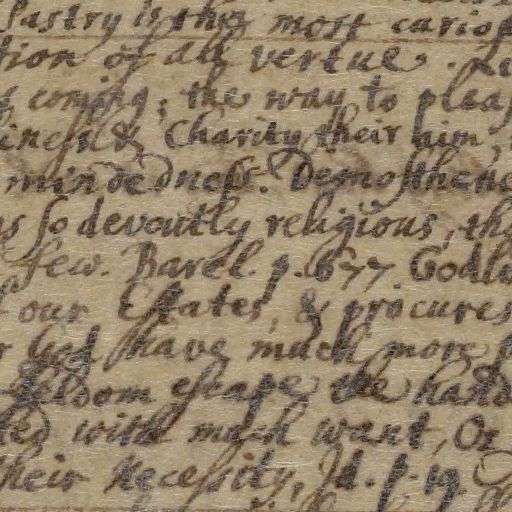 Pastry is the most curio
tion of all vertue.
coming, the way to pleas
iness & Charity their aim,
mindedness. Demosthene
so devoutly religious, th
few. Barel. p. 677. Godli
our Estates, & procures
God have much more
seldom escape the hand
with much want, Or
their Necessity, Id. p. 19